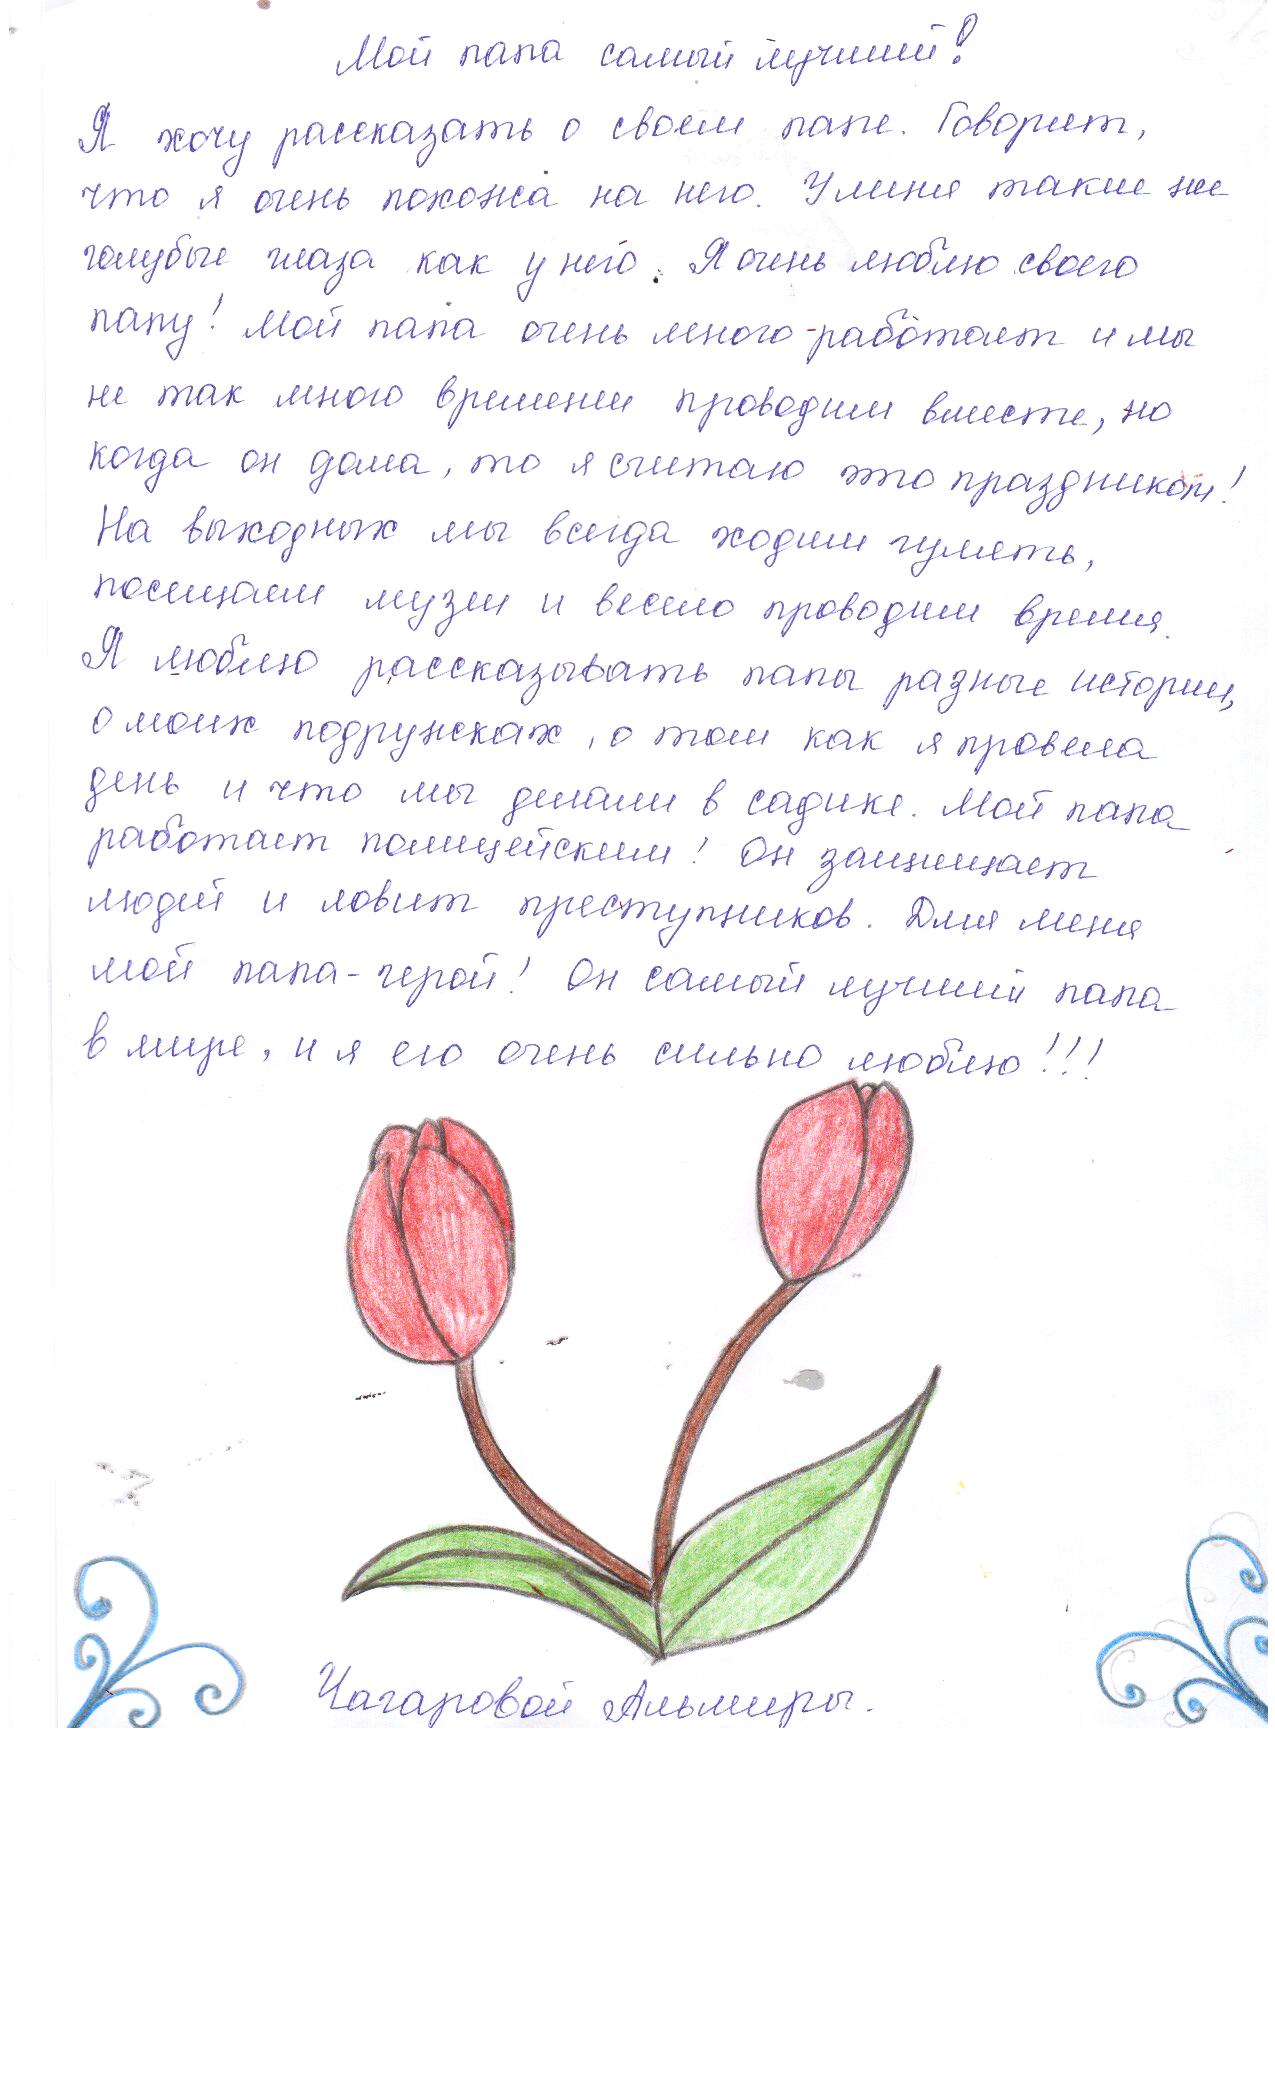 Мой папа самый лучший!
Я хочу рассказать о своем папе. Говорит,
что я очень похожа на него. У меня такие же
голубые глаза как у него. Я очень люблю своего
папу! Мой папа очень много работает и мы
не так много времени проводим вместе, но
когда он дома, то я считаю это праздником!
На выходных мы всегда ходим гулять,
посещаем музеи и весело проводим время.
Я люблю рассказывать папы разные истории,
о моих подружках, о том как я провела
день и что мы делали в садике. Мой папа
работает полицейским! Он защищает
людей и ловит преступников. Для меня
мой папа-герой! Он самый лучший папа
в мире, и я его очень сильно люблю!!!
Чагаровой Альмиры.